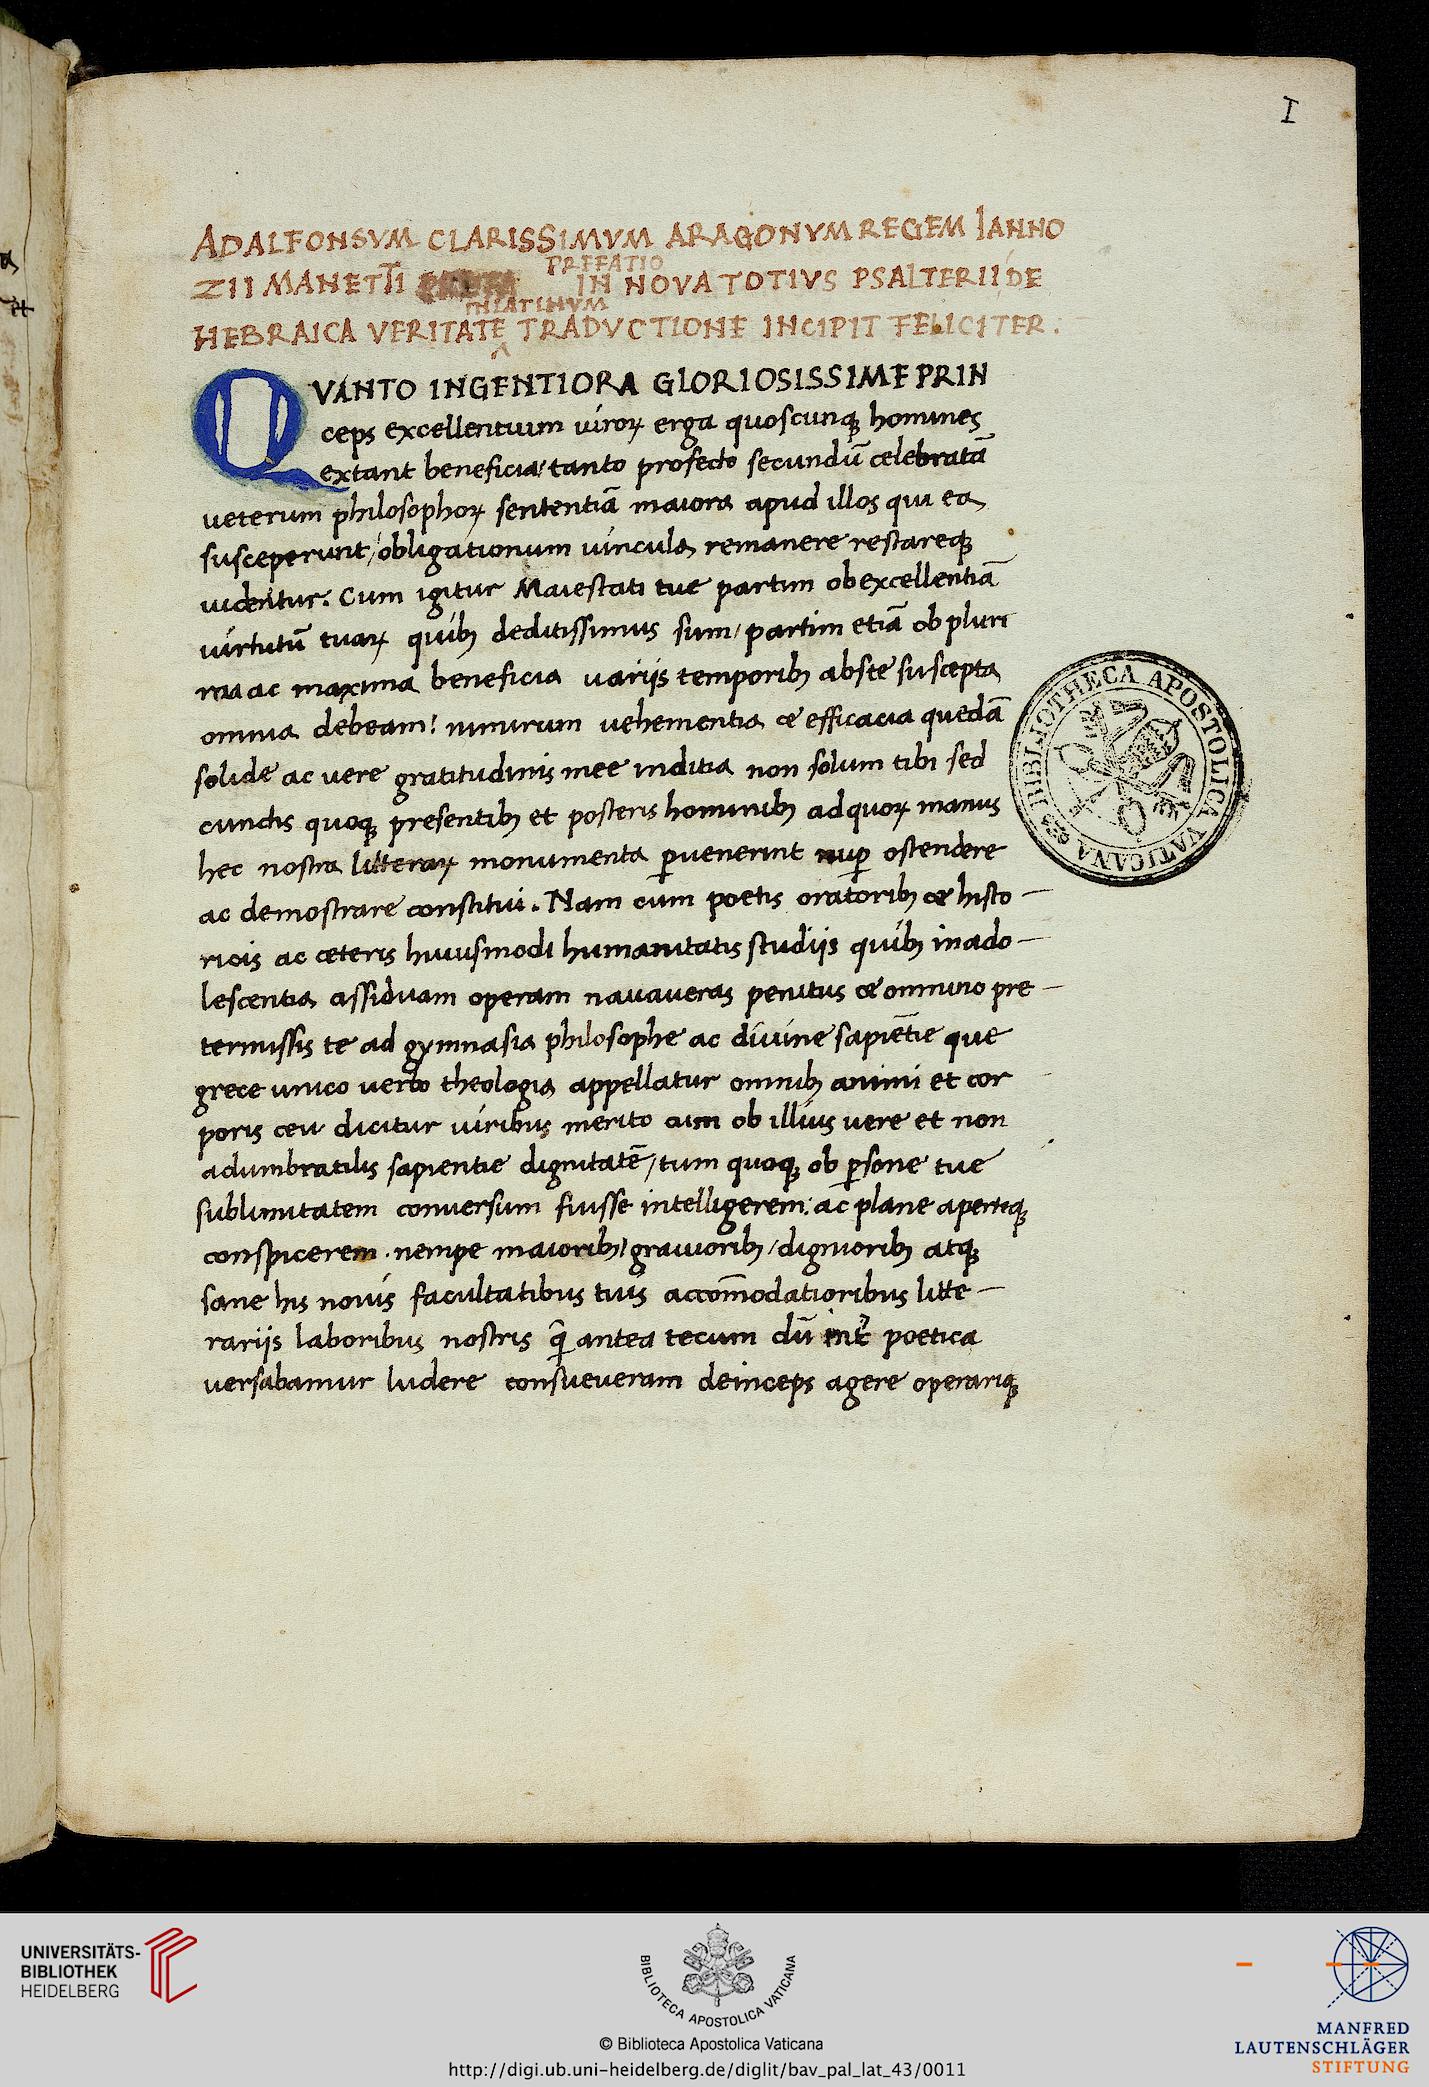 I
AD ALFONSVM CLARISSIMVM ARAGONVM REGEM IANNO
PREFATIO
ZII MANETTI IN NOVA TOTIVS PSALTERII DE
IN LATINVM
HEBRAICA VERITATE TRADVCTIONE INCIPIT FELICITER.
QVANTO INGENTIORA GLORIOSISSIME PRIN
ceps excellentium uiroꝝ erga quoscunqꝫ homines
extant beneficia/ tanto profecto secundū celebratā
ueterum philosophoꝝ sententiā maiora apud illos qui ea
susceperunt/ obligationum uincula remanere restareqꝫ
uidentur. Cum igitur Maiestati tue partim ob excellentiā
uirtutū tuaꝝ quibꝫ deditissimus sum/ partim etiā ob pluri
ma ac maxima beneficia uariis temporibꝫ abs te suscepta
omnia debeam: nimirum uehementia & efficacia quedā
solide ac uere gratitudinis mee inditia non solum tibi sed
cunctis quoqꝫ presentibꝫ et posteris hominibꝫ ad quoꝝ manus
hec nostra litteraꝝ monumenta ꝑuenerint nuꝑ ostendere
ac demostrare constitui. Nam cum poetis oratoribꝫ & histo-
ricis ac ceteris huiusmodi humanitatis studiis quibꝫ in ado-
lescentia assiduam operam nauaueras penitus & omnino pre-
termissis te ad gymnasia philosophe ac diuine sapiētie que
grece unico uerbo theologia appellatur omnibꝫ animi et cor
poris ceu dicitur uiribus merito cum ob illius uere et non
adumbratilis sapientie dignitatē/ tum quoqꝫ ob ꝑsone tue
sublimitatem conuersum fuisse intelligerem: ac plane aperteqꝫ
conspicerem. nempe maioribꝫ/ grauioribꝫ/ dignioribꝫ atqꝫ
sane his nouis facultatibus tuis accōmodatioribus litte-
rariis laboribus nostris q̄ antea tecum dū poetica
versabamur ludere consueueram deinceps agere operariqꝫ
BIBLIOTHECA APOSTOLICA VATICANA
UNIVERSITÄTS-
BIBLIOTHEK
HEIDELBERG
BIBLIOTECA APOSTOLICA VATICANA
© Biblioteca Apostolica Vaticana
http://digi.ub.uni-heidelberg.de/diglit/bav_pal_lat_43/0011
MANFRED
LAUTENSCHLÄGER
STIFTUNG